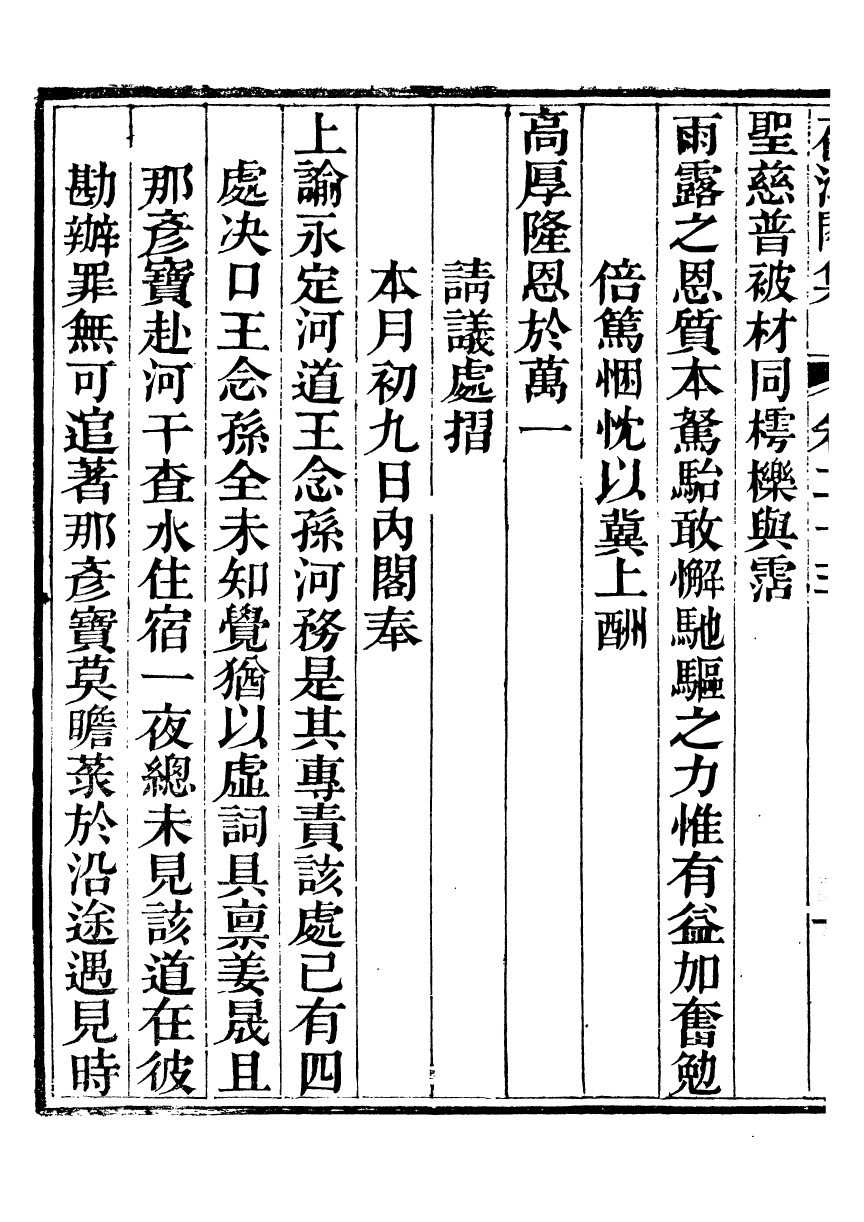 聖慈普被材同樗櫟與霑
雨露之恩質本駑駘敢懈馳驅之力惟有益加奮勉
倍篤悃忱以冀上酬
高厚隆恩於萬一
請議處摺
本月初九日內閣奉
上諭永定河道王念孫河務是其專責該處已有四
處决口王念孫全未知覺猶以虛詞具禀姜晟且
那彥寶赴河干查水住宿一夜總未見該道在彼
勘辦罪無可逭著那彥寶莫瞻菉於沿途遇見時